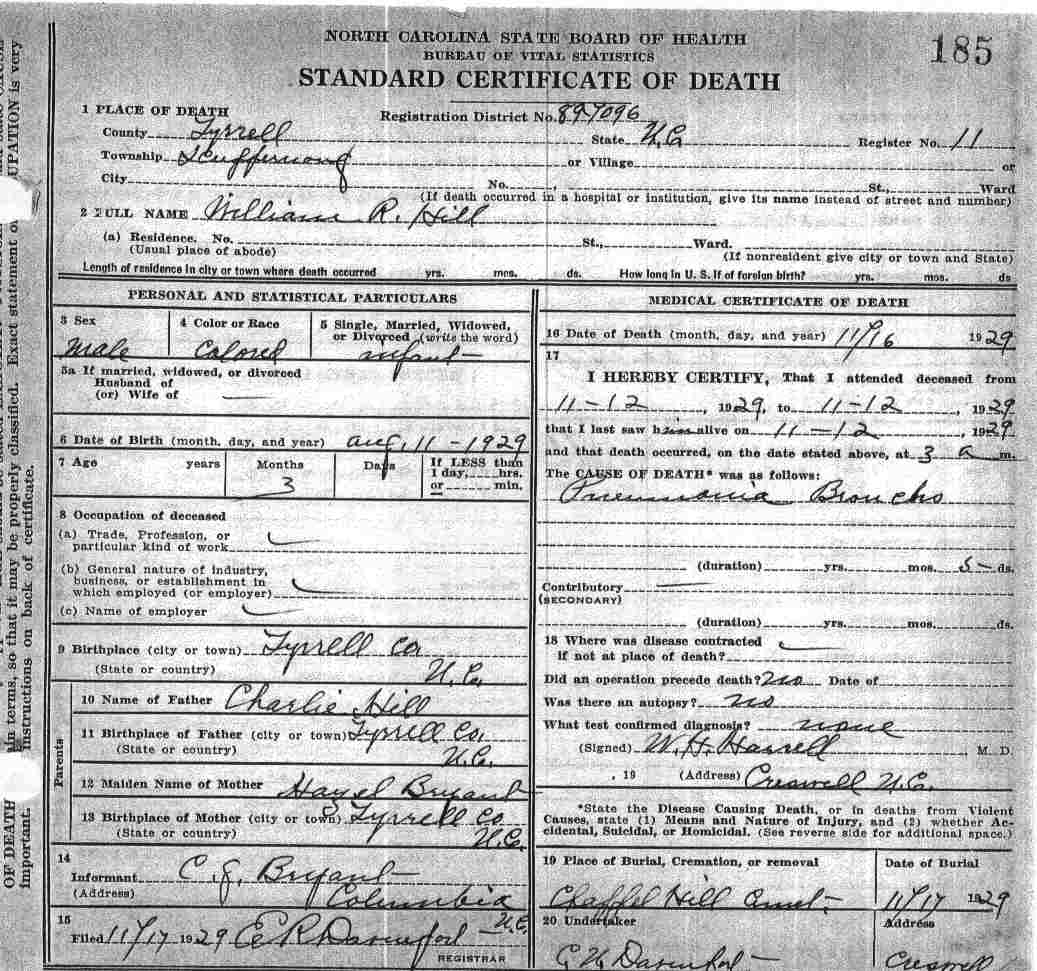 NORTH CAROLINA STATE BOARD OF HEALTH
BUREAU OF VITAL STATISTICS
185
STANDARD CERTIFICATE OF DEATH
1 PLACE OF DEATH Registration District No. 89-7096
County Tyrrell State N.C. Register No. 11
Township Scuppernong or Village or
City No. , St., Ward
(If death occurred in a hospital or institution, give its name instead of street and number)
2 FULL NAME William R. Hill
(a) Residence. No. St., Ward.
(Usual place of abode) (If nonresident give city or town and State)
Length of residence in city or town where death occurred yrs. mos. ds. How long in U. S. if of foreign birth? yrs. mos. ds
PERSONAL AND STATISTICAL PARTICULARS
3 Sex 4 Color or Race 5 Single, Married, Widowed, or Divorced (write the word)
Male Colored infant
5a If married, widowed, or divorced
Husband of
(or) Wife of —
6 Date of Birth (month, day, and year) Aug. 11 - 1929
7 Age years Months Days If LESS than
1 day, hrs.
3 or min.
8 Occupation of deceased
(a) Trade, Profession, or
particular kind of work
(b) General nature of industry,
business, or establishment in
which employed (or employer)
(c) Name of employer
9 Birthplace (city or town) Tyrrell Co.
(State or country) N.C.
Parents
10 Name of Father Charlie Hill
11 Birthplace of Father (city or town) Tyrrell Co.
(State or country) N.C.
12 Maiden Name of Mother Hazel Bryant
13 Birthplace of Mother (city or town) Tyrrell Co
(State or country) N.C.
14
Informant C. J. Bryant
(Address) Columbia N.C.
15
Filed 11/17 1929 E R Davenport
REGISTRAR
MEDICAL CERTIFICATE OF DEATH
16 Date of Death (month, day, and year) 11/16 1929
17
I HEREBY CERTIFY, That I attended deceased from
11-12, 1929, to 11-12, 1929
that I last saw him alive on 11-12, 1929
and that death occurred, on the date stated above, at 3 a m.
The CAUSE OF DEATH* was as follows:
Pneumonia Broncho
(duration) yrs. mos. 5 ds.
Contributory —
(SECONDARY)
(duration) yrs. mos. ds.
18 Where was disease contracted
if not at place of death?
Did an operation precede death? no Date of
Was there an autopsy? no
What test confirmed diagnosis? none
(Signed) W. H. Harrell M. D.
, 19 (Address) Creswell N.C.
*State the Disease Causing Death, or in deaths from Violent
Causes, state (1) Means and Nature of Injury, and (2) whether Ac-
cidental, Suicidal, or Homicidal. (See reverse side for additional space.)
19 Place of Burial, Cremation, or removal Date of Burial
Chappel Hill Cemt. 11/17 1929
20 Undertaker Address
Davenport Creswell
UPATION is very
classified. Exact statement o
in terms, so that it may be properly
instructions on back of certificate.
OF DEATH
important.